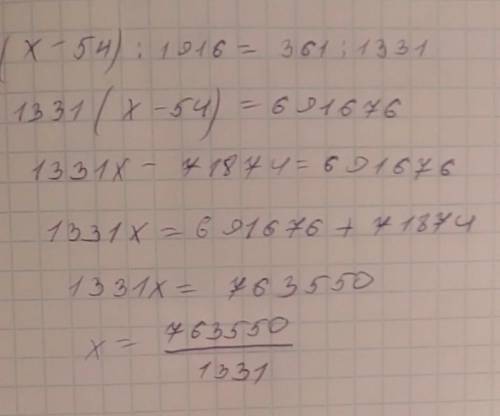 (x-54):1916=361:1331
1331(x-54)=691676
1331x-71874=691676
1331x=691676+71874
1331x=763550
x=763550/1331